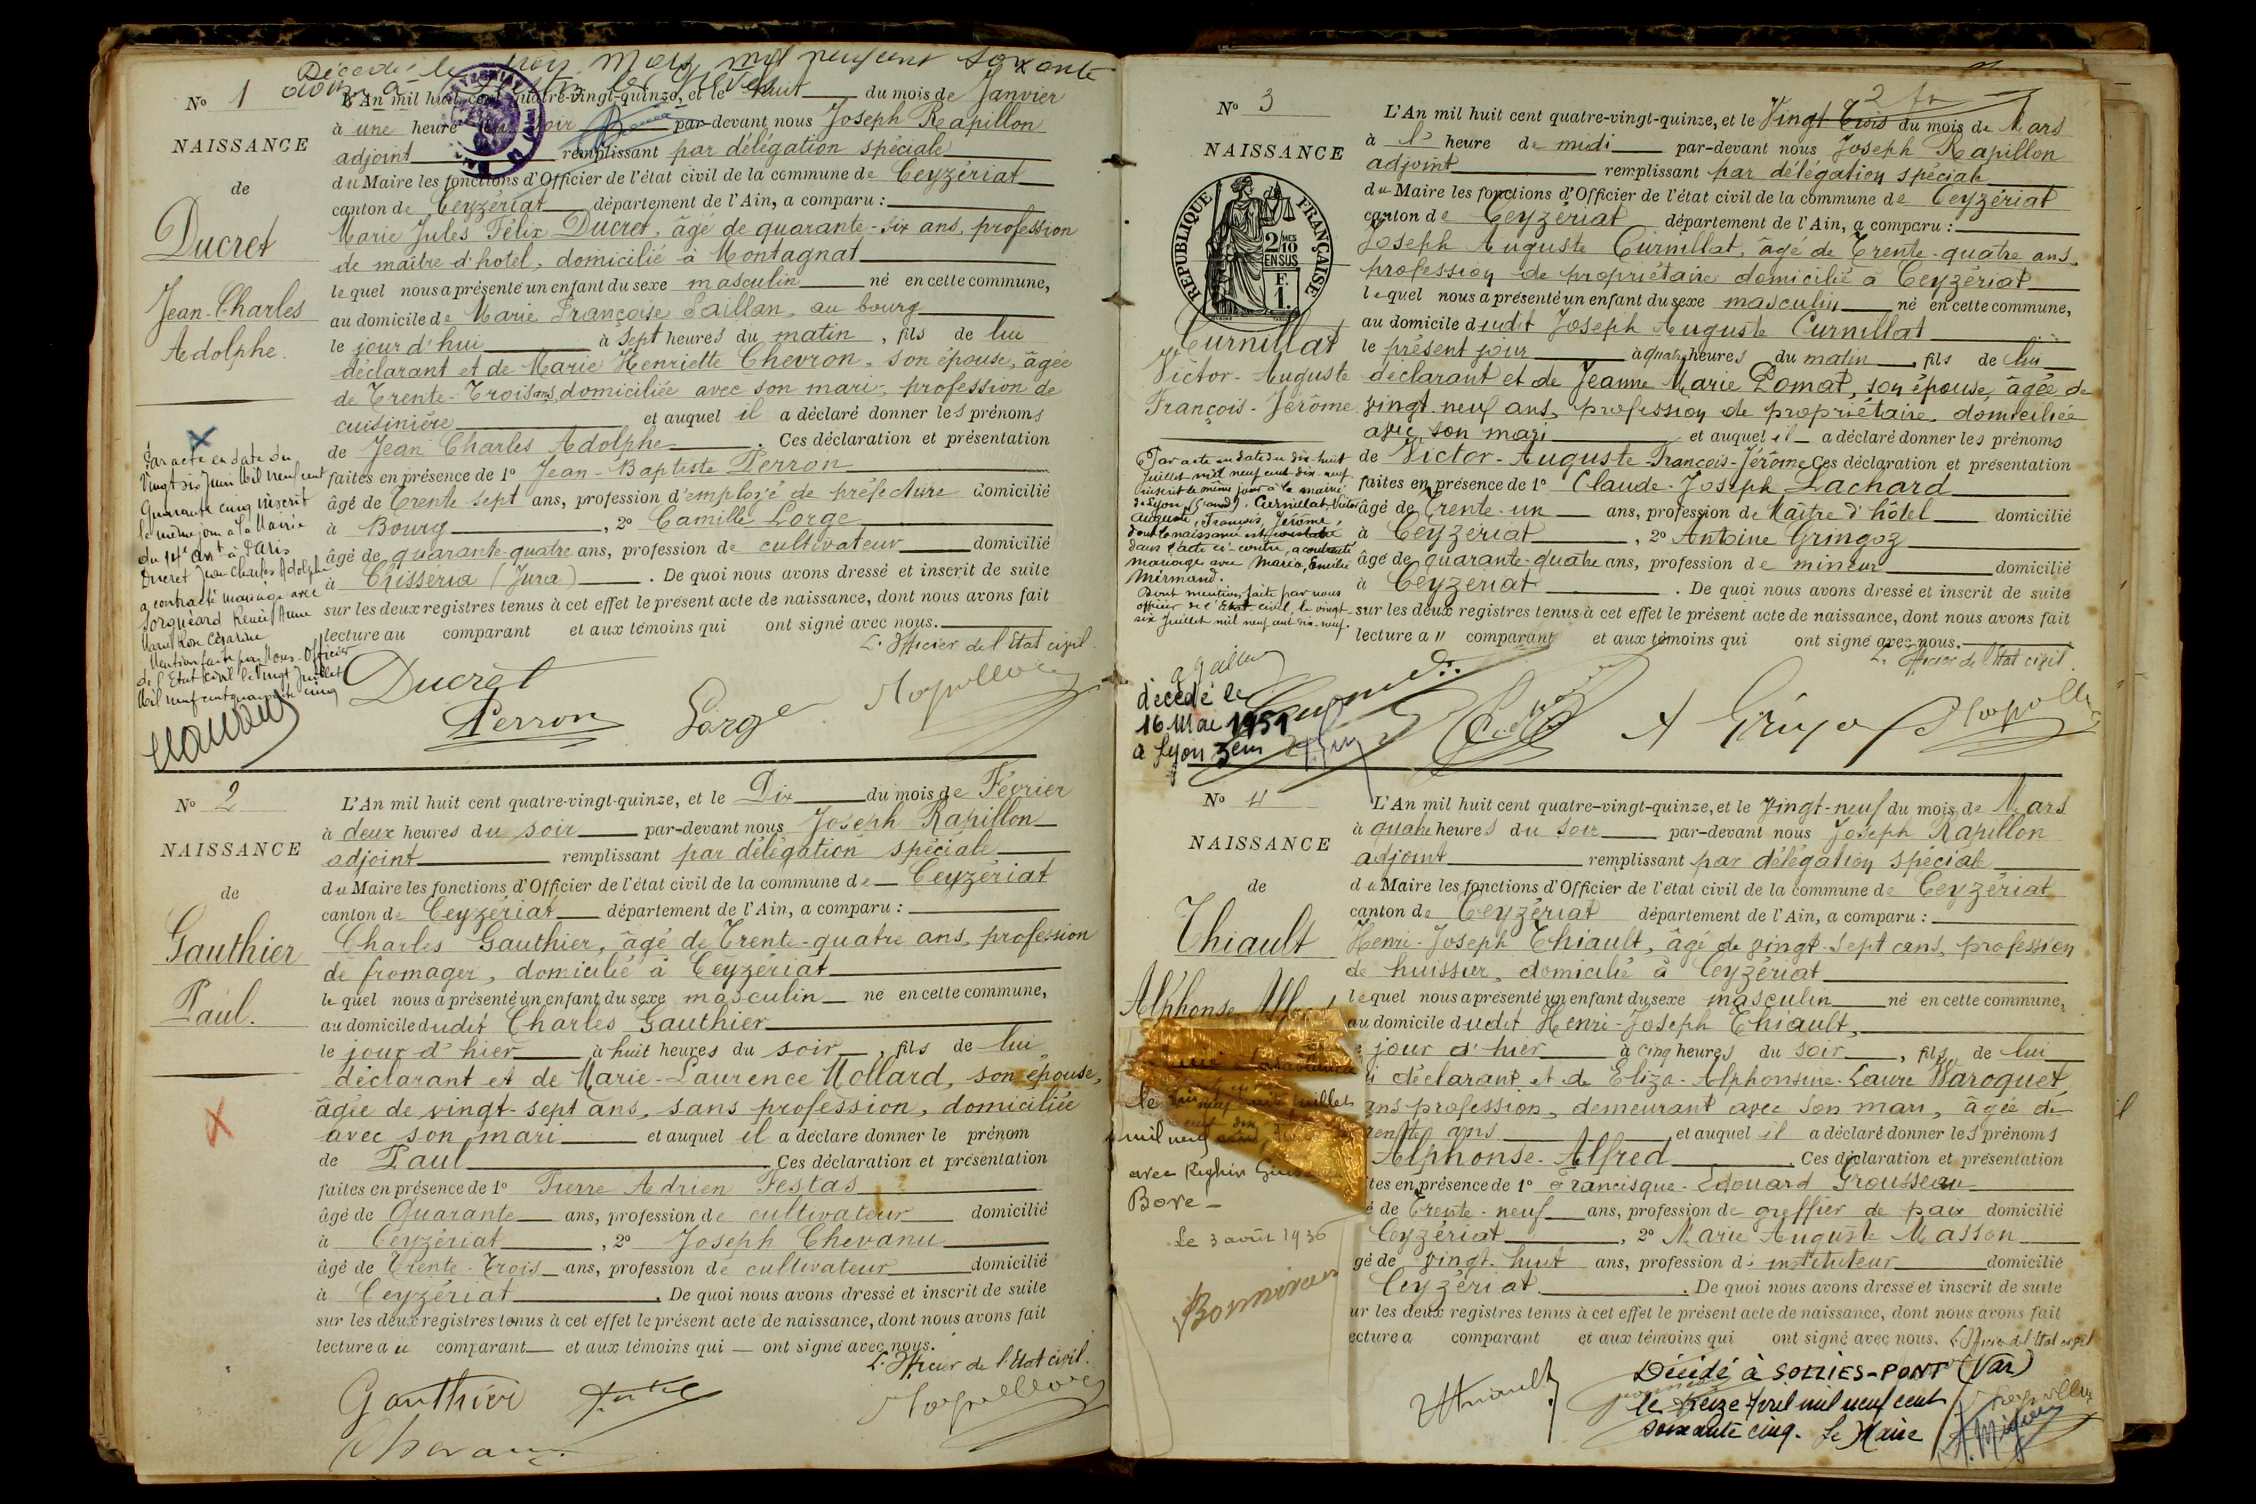 Décédé le trois Mars mil neuf cent soixante
N° 1
NAISSANCE
de
Ducret
Jean-Charles
Adolphe.
L'An mil huit cent quatre-vingt-quinze, et le huit du mois de Janvier
à une heure du soir par-devant nous Joseph Rapillon
adjoint remplissant par délégation spéciale
du Maire les fonctions d'Officier de l'état civil de la commune de Ceyzériat
canton de Ceyzériat département de l'Ain, a comparu :
Marie Jules Félix Ducret, âgé de quarante-six ans, profession
de maître d'hôtel, domicilié à Montagnat
lequel nous a présenté un enfant du sexe masculin né en cette commune,
au domicile de Marie Françoise Paillan, au bourg
le jour d'hui à sept heures du matin, fils de lui
déclarant et de Marie Henriette Chevron, son épouse, âgée
de Trente-Trois ans, domiciliée avec son mari, profession de
cuisinière et auquel il a déclaré donner les prénoms
de Jean Charles Adolphe. Ces déclaration et présentation
faites en présence de 1° Jean-Baptiste Perron
âgé de Trente sept ans, profession d'employé de préfecture domicilié
à Bourg, 2° Camille Lorge
âgé de quarante-quatre ans, profession de cultivateur domicilié
à Chisséria (Jura). De quoi nous avons dressé et inscrit de suite
sur les deux registres tenus à cet effet le présent acte de naissance, dont nous avons fait
lecture au comparant et aux témoins qui ont signé avec nous.
L'Officier de l'Etat civil.
Par acte en date du
Vingt six Juin Mil neuf cent
Quarante cinq inscrit
le même jour à la Mairie
du 14e arrt à Paris
Ducret Jean Charles Adolphe
a contracté mariage avec
Renée Anne
Césarine
Mention faite par Nous, Officier
de l'Etat Civil le Vingt Juillet
Mil neuf cent quarante cinq
Ducret
Perron
Lorge
Rapillon
N° 2
NAISSANCE
de
Gauthier
Paul.
L'An mil huit cent quatre-vingt-quinze, et le Dix du mois de Février
à deux heures du soir par-devant nous Joseph Rapillon
adjoint remplissant par délégation spéciale
du Maire les fonctions d'Officier de l'état civil de la commune de Ceyzériat
canton de Ceyzériat département de l'Ain, a comparu :
Charles Gauthier, âgé de Trente-quatre ans, profession
de fromager, domicilié à Ceyzériat
lequel nous a présenté un enfant du sexe masculin né en cette commune,
au domicile dudit Charles Gauthier
le jour d'hier à huit heures du soir, fils de lui
déclarant et de Marie-Laurence Mollard, son épouse,
âgée de vingt-sept ans, sans profession, domiciliée
avec son mari et auquel il a déclaré donner le prénom
de Paul. Ces déclaration et présentation
faites en présence de 1° Pierre Adrien Festas
âgé de Quarante ans, profession de cultivateur domicilié
à Ceyzériat, 2° Joseph Chevanu
âgé de Trente-Trois ans, profession de cultivateur domicilié
à Ceyzériat. De quoi nous avons dressé et inscrit de suite
sur les deux registres tenus à cet effet le présent acte de naissance, dont nous avons fait
lecture au comparant et aux témoins qui ont signé avec nous.
L'Officier de l'Etat civil.
Gauthier
Rapillon
N° 3
NAISSANCE
RÉPUBLIQUE FRANÇAISE
2/10
EN SUS
F.
1.
Curnillat
Victor-Auguste
François-Jérôme
L'An mil huit cent quatre-vingt-quinze, et le Vingt Trois du mois de Mars
à l' heure de midi par-devant nous Joseph Rapillon
adjoint remplissant par délégation spéciale
du Maire les fonctions d'Officier de l'état civil de la commune de Ceyzériat
canton de Ceyzériat département de l'Ain, a comparu :
Joseph Auguste Curnillat, âgé de Trente-quatre ans,
profession de propriétaire domicilié à Ceyzériat
lequel nous a présenté un enfant du sexe masculin né en cette commune,
au domicile dudit Joseph Auguste Curnillat
le présent jour à quatre heures du matin, fils de lui
déclarant et de Jeanne Marie Pomat, son épouse, âgée de
vingt-neuf ans, profession de propriétaire, domiciliée
avec son mari et auquel il a déclaré donner les prénoms
de Victor-Auguste-François-Jérôme Ces déclaration et présentation
faites en présence de 1° Claude-Joseph Lachard
âgé de Trente-un ans, profession de Maître d'hôtel domicilié
à Ceyzériat, 2° Antoine Gringoz
âgé de quarante-quatre ans, profession de mineur domicilié
à Ceyzériat. De quoi nous avons dressé et inscrit de suite
sur les deux registres tenus à cet effet le présent acte de naissance, dont nous avons fait
lecture au comparant et aux témoins qui ont signé avec nous.
L'Officier de l'Etat civil.
Par acte en date du dix-huit
Juillet mil neuf cent dix-neuf
inscrit le même jour à la mairie
de Lyon, Curnillat, Victor
Auguste, François, Jérôme,
dont la naissance est constatée
dans l'acte ci-contre, a contracté
mariage avec Maria, Emélie
Mirmand.
Dont mention faite par nous
officier de l'Etat civil, le vingt-
six Juillet mil neuf cent dix-neuf.
décédé le
16 Mai 1951
à Lyon 3em
Rapillon
N° 4
NAISSANCE
de
Thiault
Alphonse Alfred
L'An mil huit cent quatre-vingt-quinze, et le Vingt-neuf du mois de Mars
à quatre heures du soir par-devant nous Joseph Rapillon
adjoint remplissant par délégation spéciale
du Maire les fonctions d'Officier de l'état civil de la commune de Ceyzériat
canton de Ceyzériat département de l'Ain, a comparu :
Henri-Joseph Thiault, âgé de vingt-sept ans, profession
de huissier, domicilié à Ceyzériat
lequel nous a présenté un enfant du sexe masculin né en cette commune,
au domicile dudit Henri-Joseph Thiault,
jour d'hier à cinq heures du soir, fils de lui
déclarant et de Eliza-Alphonsine-Laure Waroquet
ans profession, demeurant avec son mari, âgée de
trente ans et auquel il a déclaré donner les prénoms
Alphonse-Alfred. Ces déclaration et présentation
tes en présence de 1° Francisque-Edouard Grousseau
é de Trente-neuf ans, profession de greffier de paix domicilié
Ceyzériat, 2° Marie Auguste Masson
gé de vingt-huit ans, profession de instituteur domicilié
Ceyzériat. De quoi nous avons dressé et inscrit de suite
ur les deux registres tenus à cet effet le présent acte de naissance, dont nous avons fait
ecture a comparant et aux témoins qui ont signé avec nous. L'Officier de l'Etat civil
Casablanca
le juillet
mil neuf
avec
Bove
Le 3 août 1936
Thiault
Décédé à SOLLIES-PONT (Var)
le treize Avril mil neuf cent
soixante cinq. Le Maire